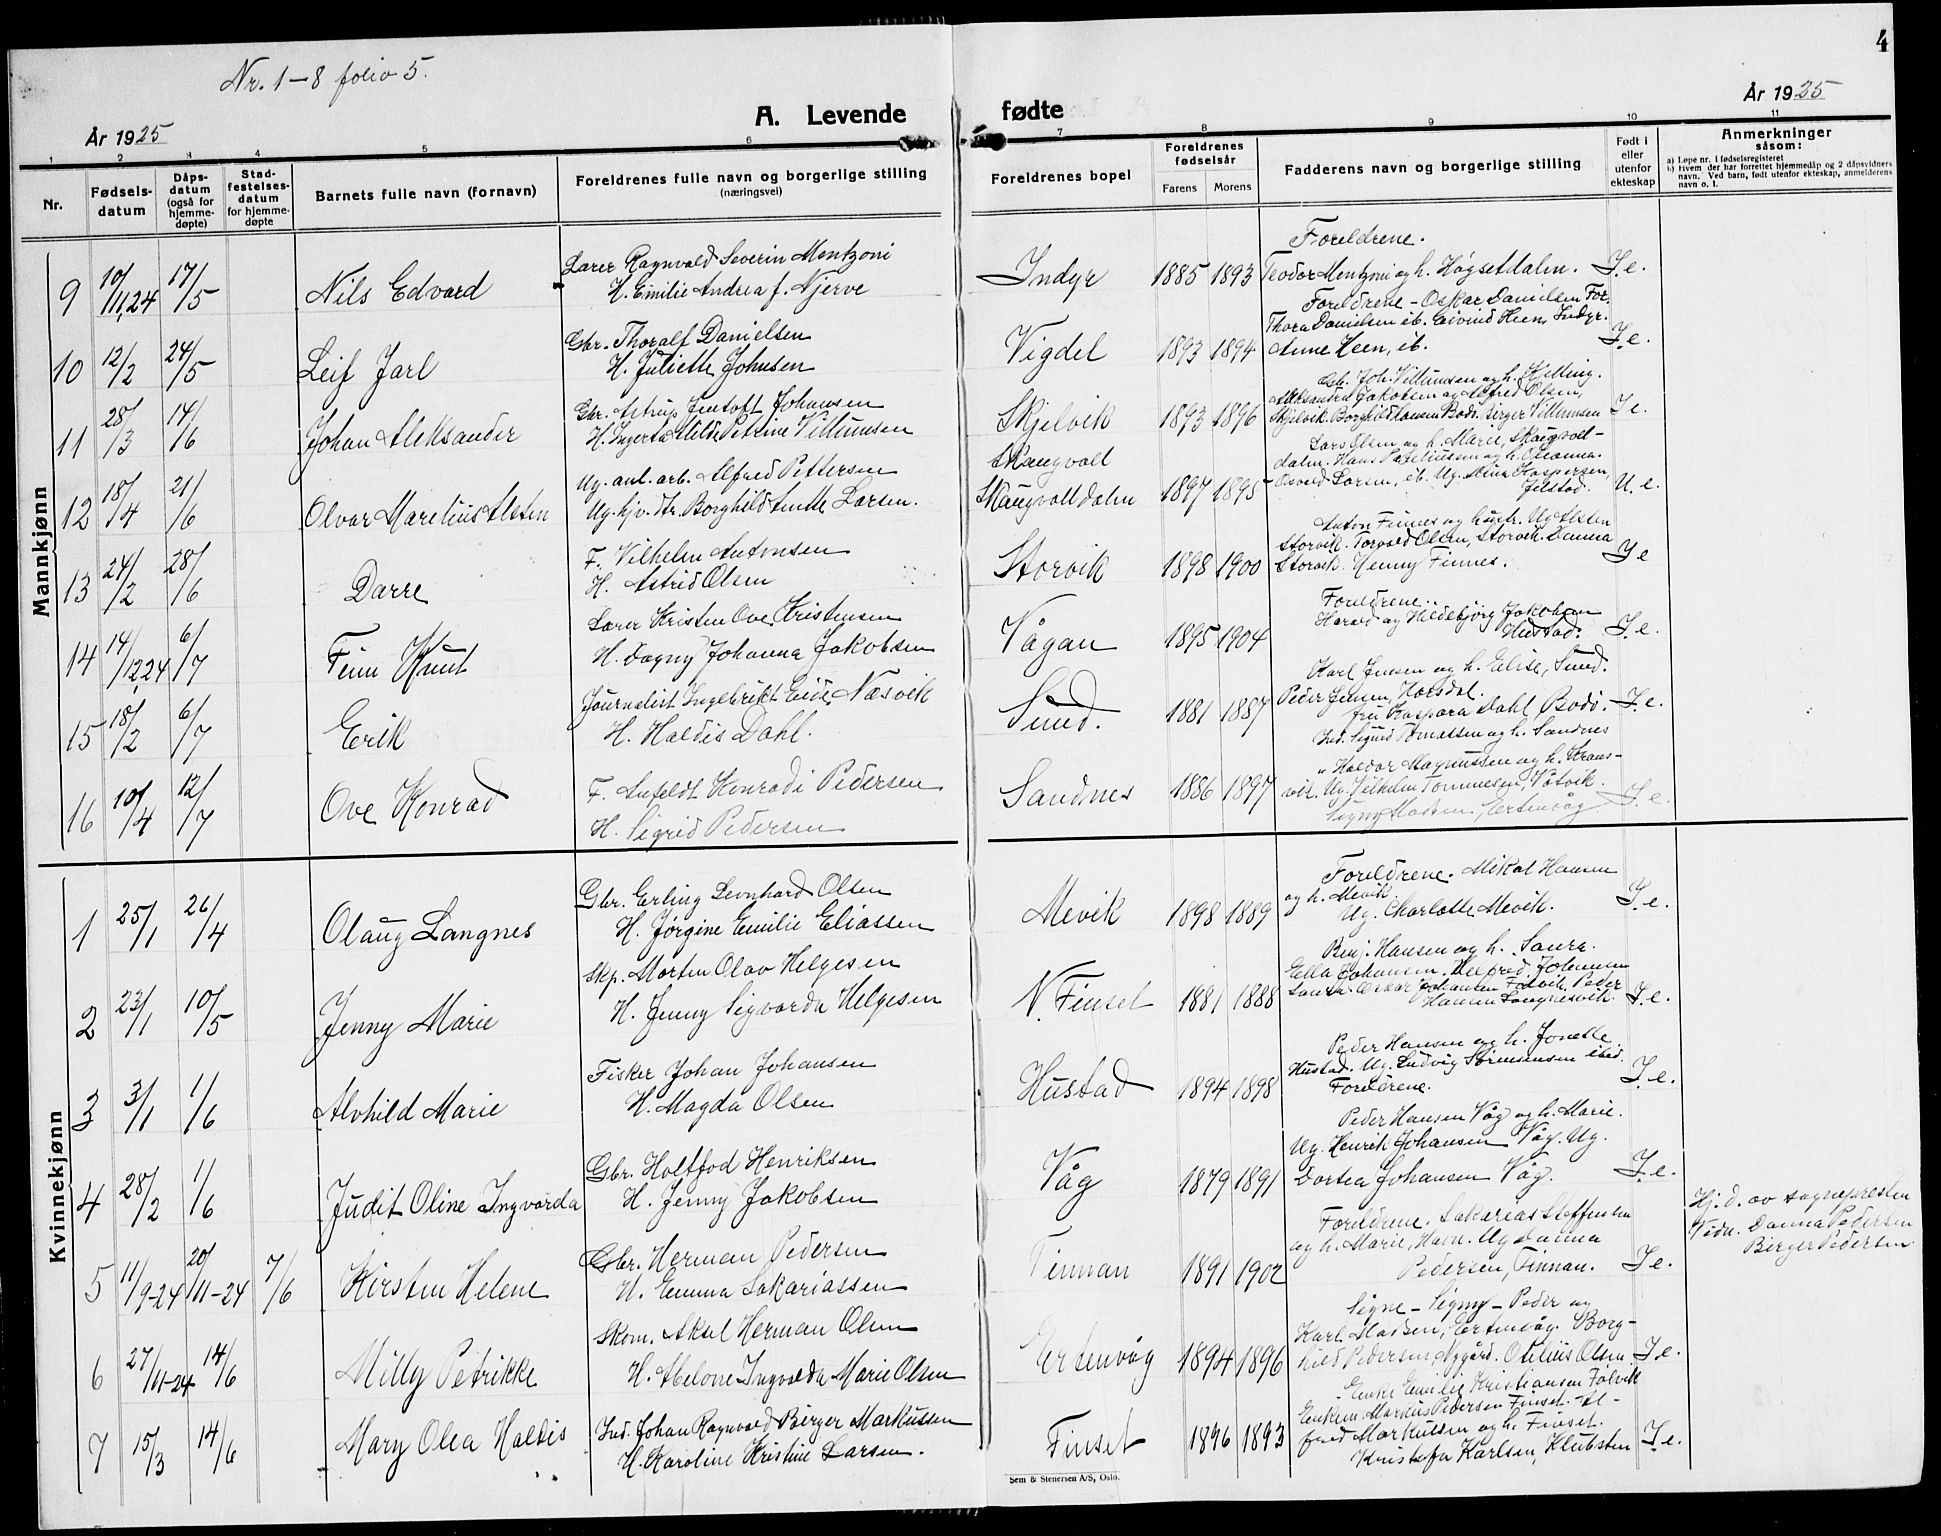 Nr. 1-8 folio 5.
4
År 1925
A. Levende
fødte
År 1925
1 2 3 4 5 6 7 8 9 10 11
Nr.
Fødsels-
datum
Dåps-
datum
(også for
hjemme-
døpte)
Stad-
festelses-
datum
for hjemme-
døpte
Barnets fulle navn (fornavn)
Foreldrenes fulle navn og borgerlige stilling
(næringsvei)
Foreldrenes bopel
Foreldrenes
fødselsår
Farens Morens
Fadderens navn og borgerlige stilling
Født i
eller
utenfor
ekteskap
Anmerkninger
såsom:
a) Løpe nr. i fødselsregisteret
b) Hvem der har forrettet hjemmedåp og 2 dåpsvidners
navn. Ved barn, født utenfor ekteskap, anmelderens
navn o. l.
Mannkjønn
9 10/11,24 17/5 Nils Edvard
Lærer Ragnvald Severin Mentzoni
H. Emilie Andrea f. Njerve
Indyr 1885 1893
Foreldrene.
Teodor Mentzoni og h. Høgsetdalen. I. e.
10 12/2 24/5 Leif Jarl
Gbr. Thoralf Danielsen
H. Juliette Johnsen
Vigdel 1893 1894
Foreldrene - Oskar Danielsen For.
Thora Danielsen ib. Eivind Heen, Indyr.
Anne Heen, ib. I. e.
11 28/3 14/6 Johan Aleksander
Gbr. Astrup Jentoft Johansen
H. Ingerta Hilde Petrine Villumsen
Skjelvik 1893 1896
Gb. Joh. Villumsen og h. Kjelling.
Aleksandra Jakobsen og Alfred Olsen,
Skjelvik. Borghild Hansen Bodø. Birger Villumsen I. e.
12 18/4 21/6 Olvar Marelius Alsten
Ug. anl. arb. Alfred Pettersen
Ug. hjv. dtr. Borghild Anette Larsen.
Skaugvoll
Skaugvolldalen 1897 1895
Lars Olsen og h. Marie, Skaugvoll-
dalen. Hans Pareliussen og h. Oleanna.
Osvald Larsen, ib. Ug. Mina Kaspersen,
Jelstad. U. e.
13 24/2 28/6 Darre
F. Vilhelm Antonsen
H. Astrid Olsen
Storvik 1898 1900
Anton Finnes og hustr. Ug Alsten
Storvik. Torvald Olsen, Storvik. Danna
Storvik. Henny Finnes. I e
14 14/12,24 6/7 Finn Knut
Lærer Kristen Ove Kristensen
H. Dagny Johanna Jakobsen
Vågan 1895 1904
Foreldrene.
Harald og Hildebjørg Jakobsen
Hustad. I. e.
15 18/2 6/7 Erik
Journalist Ingebrikt Eide Næsvik
H. Haldis Dahl.
Sund. 1881 1887
Karl Jensen og h. Elise, Sund.
Peder Jensen, Horsdal.
fru Kaspara Dahl, Bodø. I. e.
16 10/4 12/7 Ove Konrad
F. Anfeldt Konradi Pedersen
H. Sigrid Pedersen
Sandnes 1886 1897
Ind. Sigurd Tomassen og h. Sandnes
" Haldor Magnussen og h. Krans-
vik. Ug. Vilhelm Tommesen, Våtvik.
Signy Madsen, Ertenvåg I. e.
Kvinnekjønn
1 25/1 26/4 Olaug Langnes
Gbr. Erling Leonhard Olsen
H. Jørgine Emilie Eliassen
Mevik 1898 1889
Foreldrene. Mikal Hansen
og h. Mevik.
Ug. Charlotte Mevik. I. e.
2 23/1 10/5 Jenny Marie
Skp. Morten Olav Helgesen
H. Jenny Sigvarda Helgesen
N. Finset 1881 1888
Benj. Hansen og h. Saura.
Ella Johansen. Alfred Johansen
Saura. Oskar Johansen Følvik. Peder
Hansen Langnesvik. I. e.
3 3/1 1/6 Alvhild Marie
Fisker Johan Johansen
H. Magda Olsen
Hustad 1894 1898
Peder Hansen og h. Jonette
Hustad. Ug. Ludvig Sørensen ibid.
Foreldrene. I. e.
4 28/2 1/6 Judit Oline Ingvarda
Gbr. Holtfod Henriksen
H. Jenny Jakobsen
Våg 1879 1891
Peder Hansen Våg og h. Marie.
Ug. Henrik Johansen Våg. Ug.
Dortea Johansen Våg. I. e.
5 11/9-24 20/11-24 7/6 Kirsten Helene
Gbr. Herman Pedersen
H. Emma Sakariassen
Finnan 1891 1902
Foreldrene. Sakarias Steffensen
og h. Marie, Havn. Ug Danna
Pedersen, Finnan. I e.
Hj. d. av sognepresten
Vidn. Danna Pedersen
Birger Pedersen.
6 27/11-24 14/6 Milly Petrikke
Skom. Aksel Herman Olsen
H. Abelone Ingvalda Marie Olsen
Ertenvåg 1894 1896
Signe - Signy - Peder og
Karl Madsen, Ertenvåg. Borg-
hild Pedersen Nygård. Otilius Olsen. I e.
7 15/3 14/6 Mary Olea Haldis
Ind. Johan Ragnvald Birger Markussen
H. Karoline Kristine Larsen.
Finset 1896 1893
Enke Emilie Kristiansen Følvik
Enkem. Markus Pedersen Finset. Al-
fred Markussen og h. Finset.
Kristofer Karlsen, Klubsten I. e.
Sem & Stenersen A/S, Oslo.